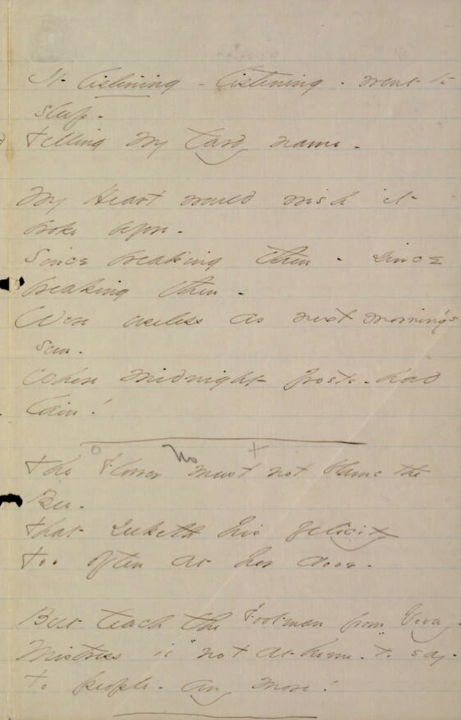 It listening - listening - went to
sleep -
telling my tardy name -
My Heart would wish it
broke before -
Since breaking then - since
breaking then -
Were useless as next morning's
sun -
Where midnight frosts - had
lain!
No
The Flower must not blame the
Bee -
that seeketh his felicity
too often at her door -
But teach the Footman from Vevay -
Mistress is "not at home" - to say -
to people - any more!